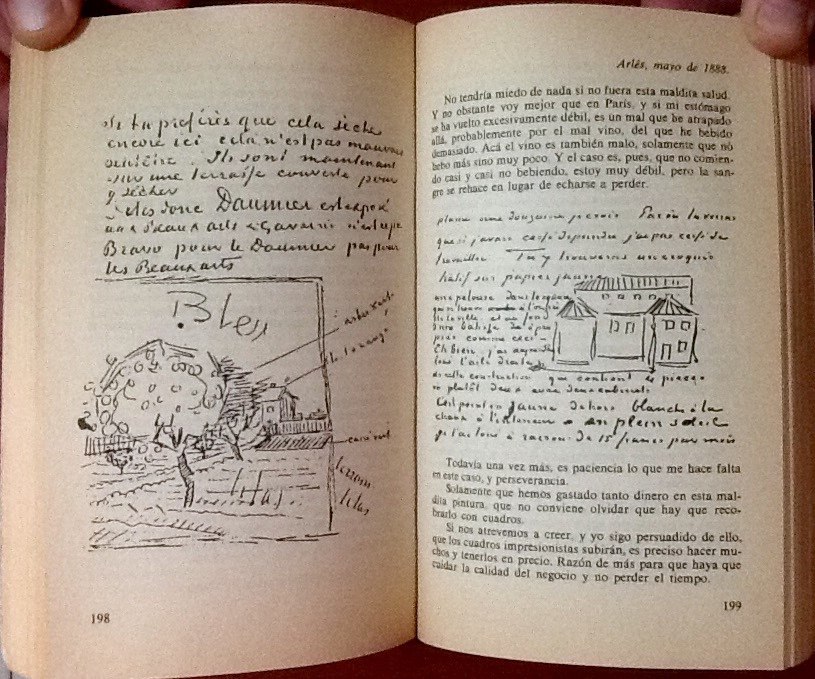 si tu préfères que cela sèche
encore ici cela n'est pas mauvais
Ils sont maintenant
sur une terrasse couverte pour
y sécher
donc Daumier est exposé
aux beaux arts &
Bravo pour le Daumier pas pour
les Beaux arts
Bleu
lilas
lilas
198
Arlés, mayo de 1888.
No tendría miedo de nada si no fuera esta maldita salud.
Y no obstante voy mejor que en París, y si mi estómago
se ha vuelto excesivamente débil, es un mal que he atrapado
allá, probablemente por el mal vino, del que he bebido
demasiado. Acá el vino es también malo, solamente que no
bebo más sino muy poco. Y el caso es, pues, que no comien-
do casi y casi no bebiendo, estoy muy débil, pero la san-
gre se rehace en lugar de echarse a perder.
travailler Tu y trouveras un croquis
hâtif sur papier jaune
une pelouse dans le square
Eh bien, j'ai aujourd'hui
loué l'aile droite
de cette construction qui contient
ou plutôt deux avec deux cabinets
C'est peint en jaune dehors blanchi à la
chaux à l'intérieur en plein soleil
je l'ai loué à raison de 15 francs par mois
Todavía una vez más, es paciencia lo que me hace falta
en este caso, y perseverancia.
Solamente que hemos gastado tanto dinero en esta mal-
dita pintura, que no conviene olvidar que hay que reco-
brarlo con cuadros.
Si nos atrevemos a creer, y yo sigo persuadido de ello,
que los cuadros impresionistas subirán, es preciso hacer mu-
chos y tenerlos en precio. Razón de más para que haya que
cuidar la calidad del negocio y no perder el tiempo.
199